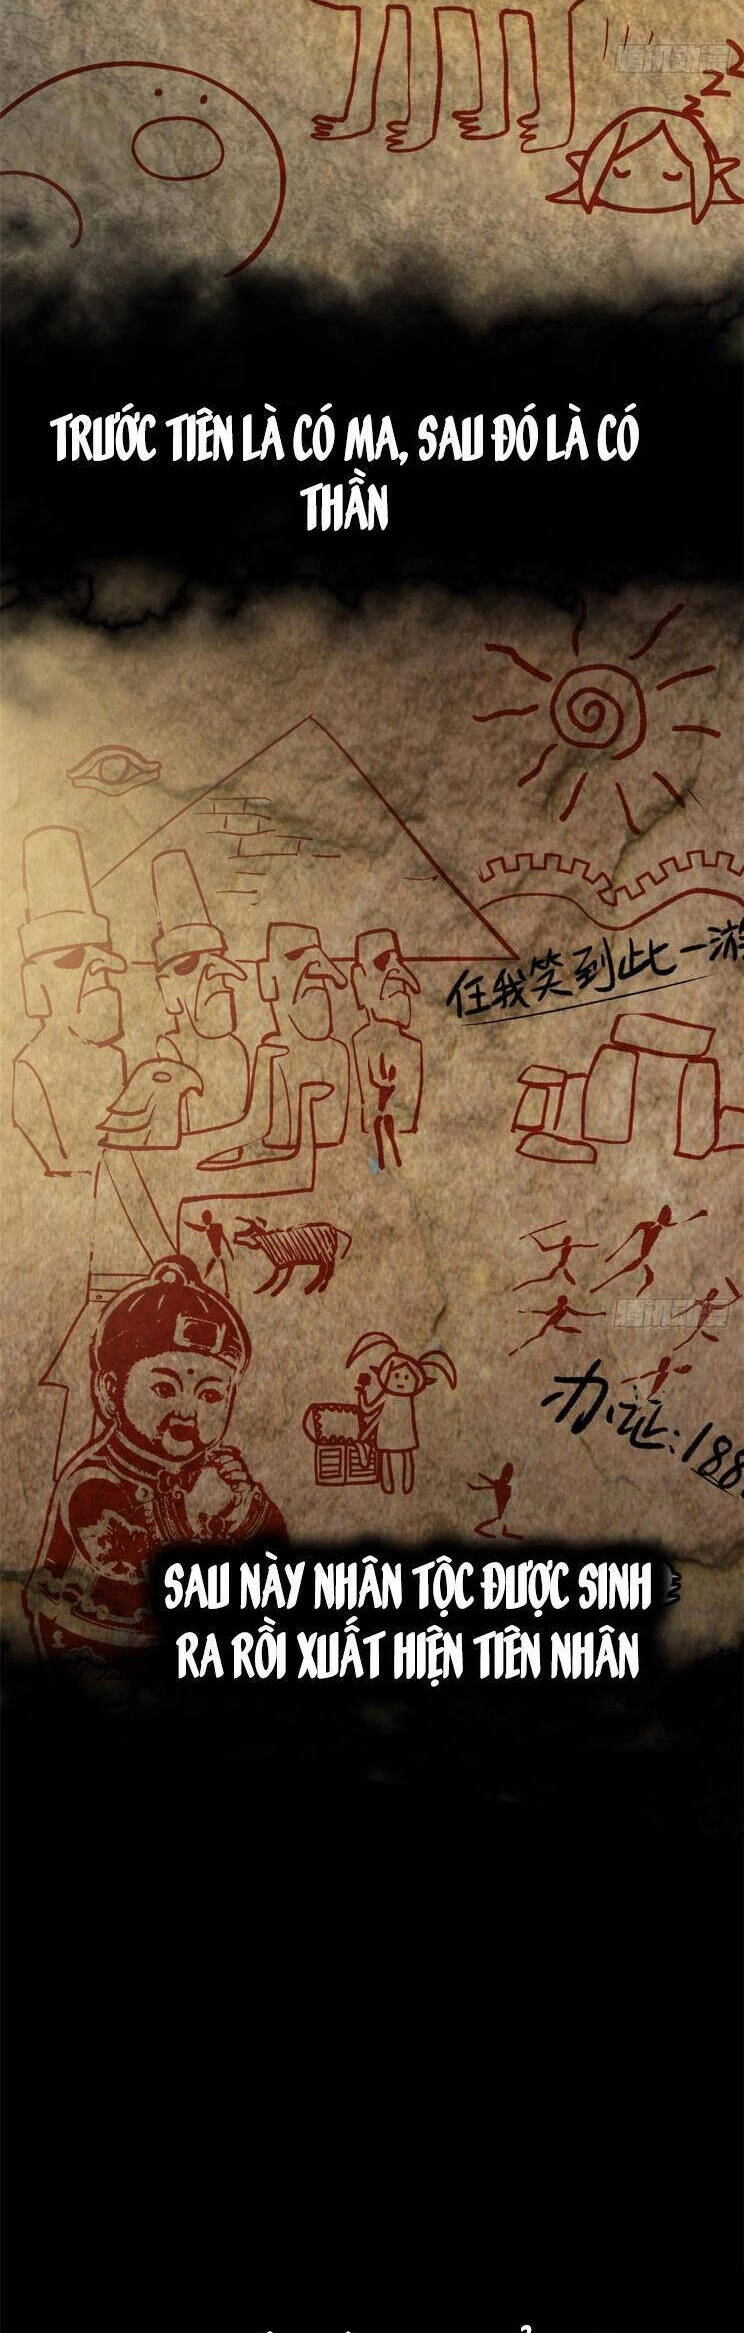 TRƯỚC TIÊN LÀ CÓ MA, SAU ĐÓ LÀ CÓ
THẦN
任我笑到此一游
办证:188
SAU NÀY NHÂN TỘC ĐƯỢC SINH
RA RỒI XUẤT HIỆN TIÊN NHÂN